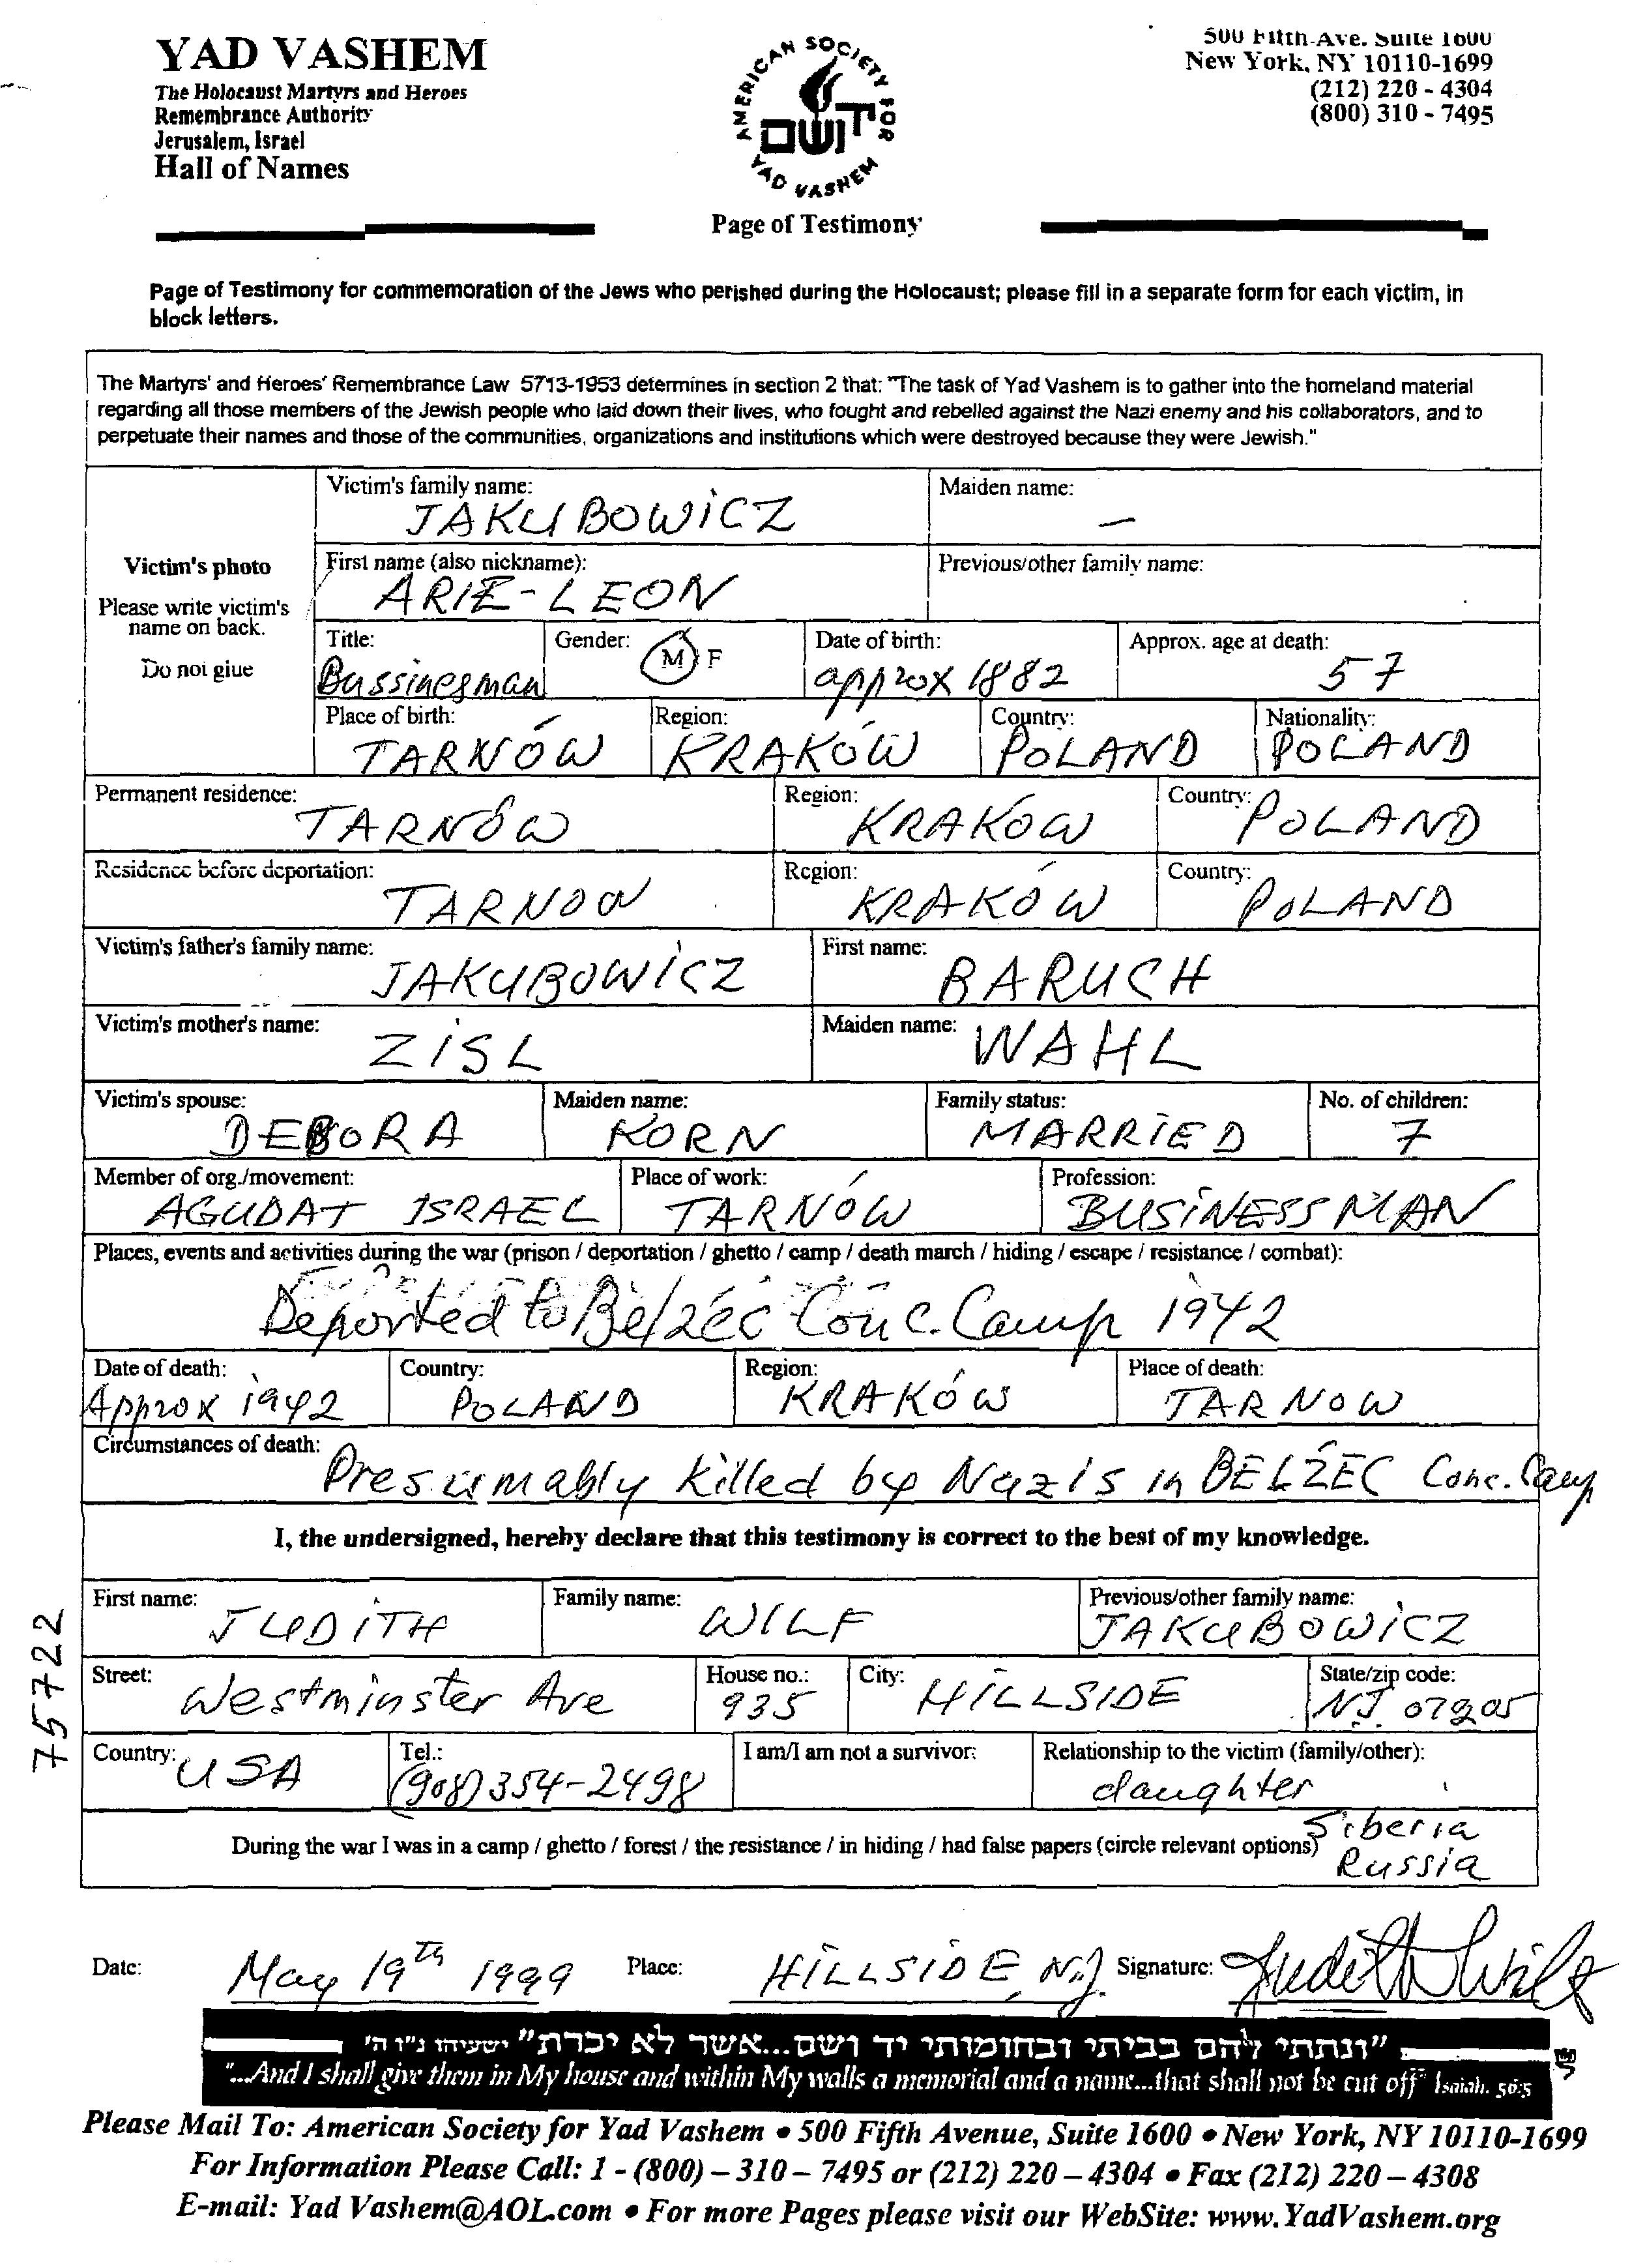 YAD VASHEM
The Holocaust Martyrs and Heroes
Remembrance Authority
Jerusalem, Israel
Hall of Names
AMERICAN SOCIETY FOR
יד ושם
YAD VASHEM
Page of Testimony
500 Fifth Ave. Suite 1600
New York, NY 10110-1699
(212) 220 - 4304
(800) 310 - 7495
Page of Testimony for commemoration of the Jews who perished during the Holocaust; please fill in a separate form for each victim, in
block letters.
The Martyrs' and Heroes' Remembrance Law 5713-1953 determines in section 2 that: "The task of Yad Vashem is to gather into the homeland material
regarding all those members of the Jewish people who laid down their lives, who fought and rebelled against the Nazi enemy and his collaborators, and to
perpetuate their names and those of the communities, organizations and institutions which were destroyed because they were Jewish."
Victim's photo
Please write victim's
name on back.
Do not glue
Victim's family name: JAKUBOWICZ
Maiden name: —
First name (also nickname): ARIE-LEON
Previous/other family name:
Title: Bussinesman
Gender: M F
Date of birth: approx 1882
Approx. age at death: 57
Place of birth: TARNÓW
Region: KRAKÓW
Country: POLAND
Nationality: POLAND
Permanent residence: TARNÓW
Region: KRAKOW
Country: POLAND
Residence before deportation: TARNOW
Region: KRAKÓW
Country: POLAND
Victim's father's family name: JAKUBOWICZ
First name: BARUCH
Victim's mother's name: ZISL
Maiden name: WAHL
Victim's spouse: DEBORA
Maiden name: KORN
Family status: MARRIED
No. of children: 7
Member of org./movement: AGUDAT ISRAEL
Place of work: TARNÓW
Profession: BUSINESSMAN
Places, events and activities during the war (prison / deportation / ghetto / camp / death march / hiding / escape / resistance / combat):
Deported to Belzéc Conc. Camp 1942
Date of death: Approx 1942
Country: POLAND
Region: KRAKÓW
Place of death: TARNOW
Circumstances of death: Presumably killed by Nazis in BEŁŻEC Conc. Camp
I, the undersigned, hereby declare that this testimony is correct to the best of my knowledge.
First name: JUDITH
Family name: WILF
Previous/other family name: JAKUBOWICZ
Street: Westminster Ave
House no.: 935
City: HILLSIDE
State/zip code: NJ. 07205
Country: USA
Tel.: (908) 354-2498
I am/I am not a survivor:
Relationship to the victim (family/other): daughter
During the war I was in a camp / ghetto / forest / the resistance / in hiding / had false papers (circle relevant options) Siberia
Russia
75722
Date: May 19th 1999 Place: HILLSIDE, N.J. Signature: Judith Wilf
"ונתתי להם בביתי ובחומותי יד ושם...אשר לא יכרת" ישעיהו נ"ו ה'
"...And I shall give them in My house and within My walls a memorial and a name...that shall not be cut off" Isaiah. 56:5
Please Mail To: American Society for Yad Vashem • 500 Fifth Avenue, Suite 1600 • New York, NY 10110-1699
For Information Please Call: 1 - (800) – 310 – 7495 or (212) 220 – 4304 • Fax (212) 220 – 4308
E-mail: Yad Vashem@AOL.com • For more Pages please visit our WebSite: www.YadVashem.org